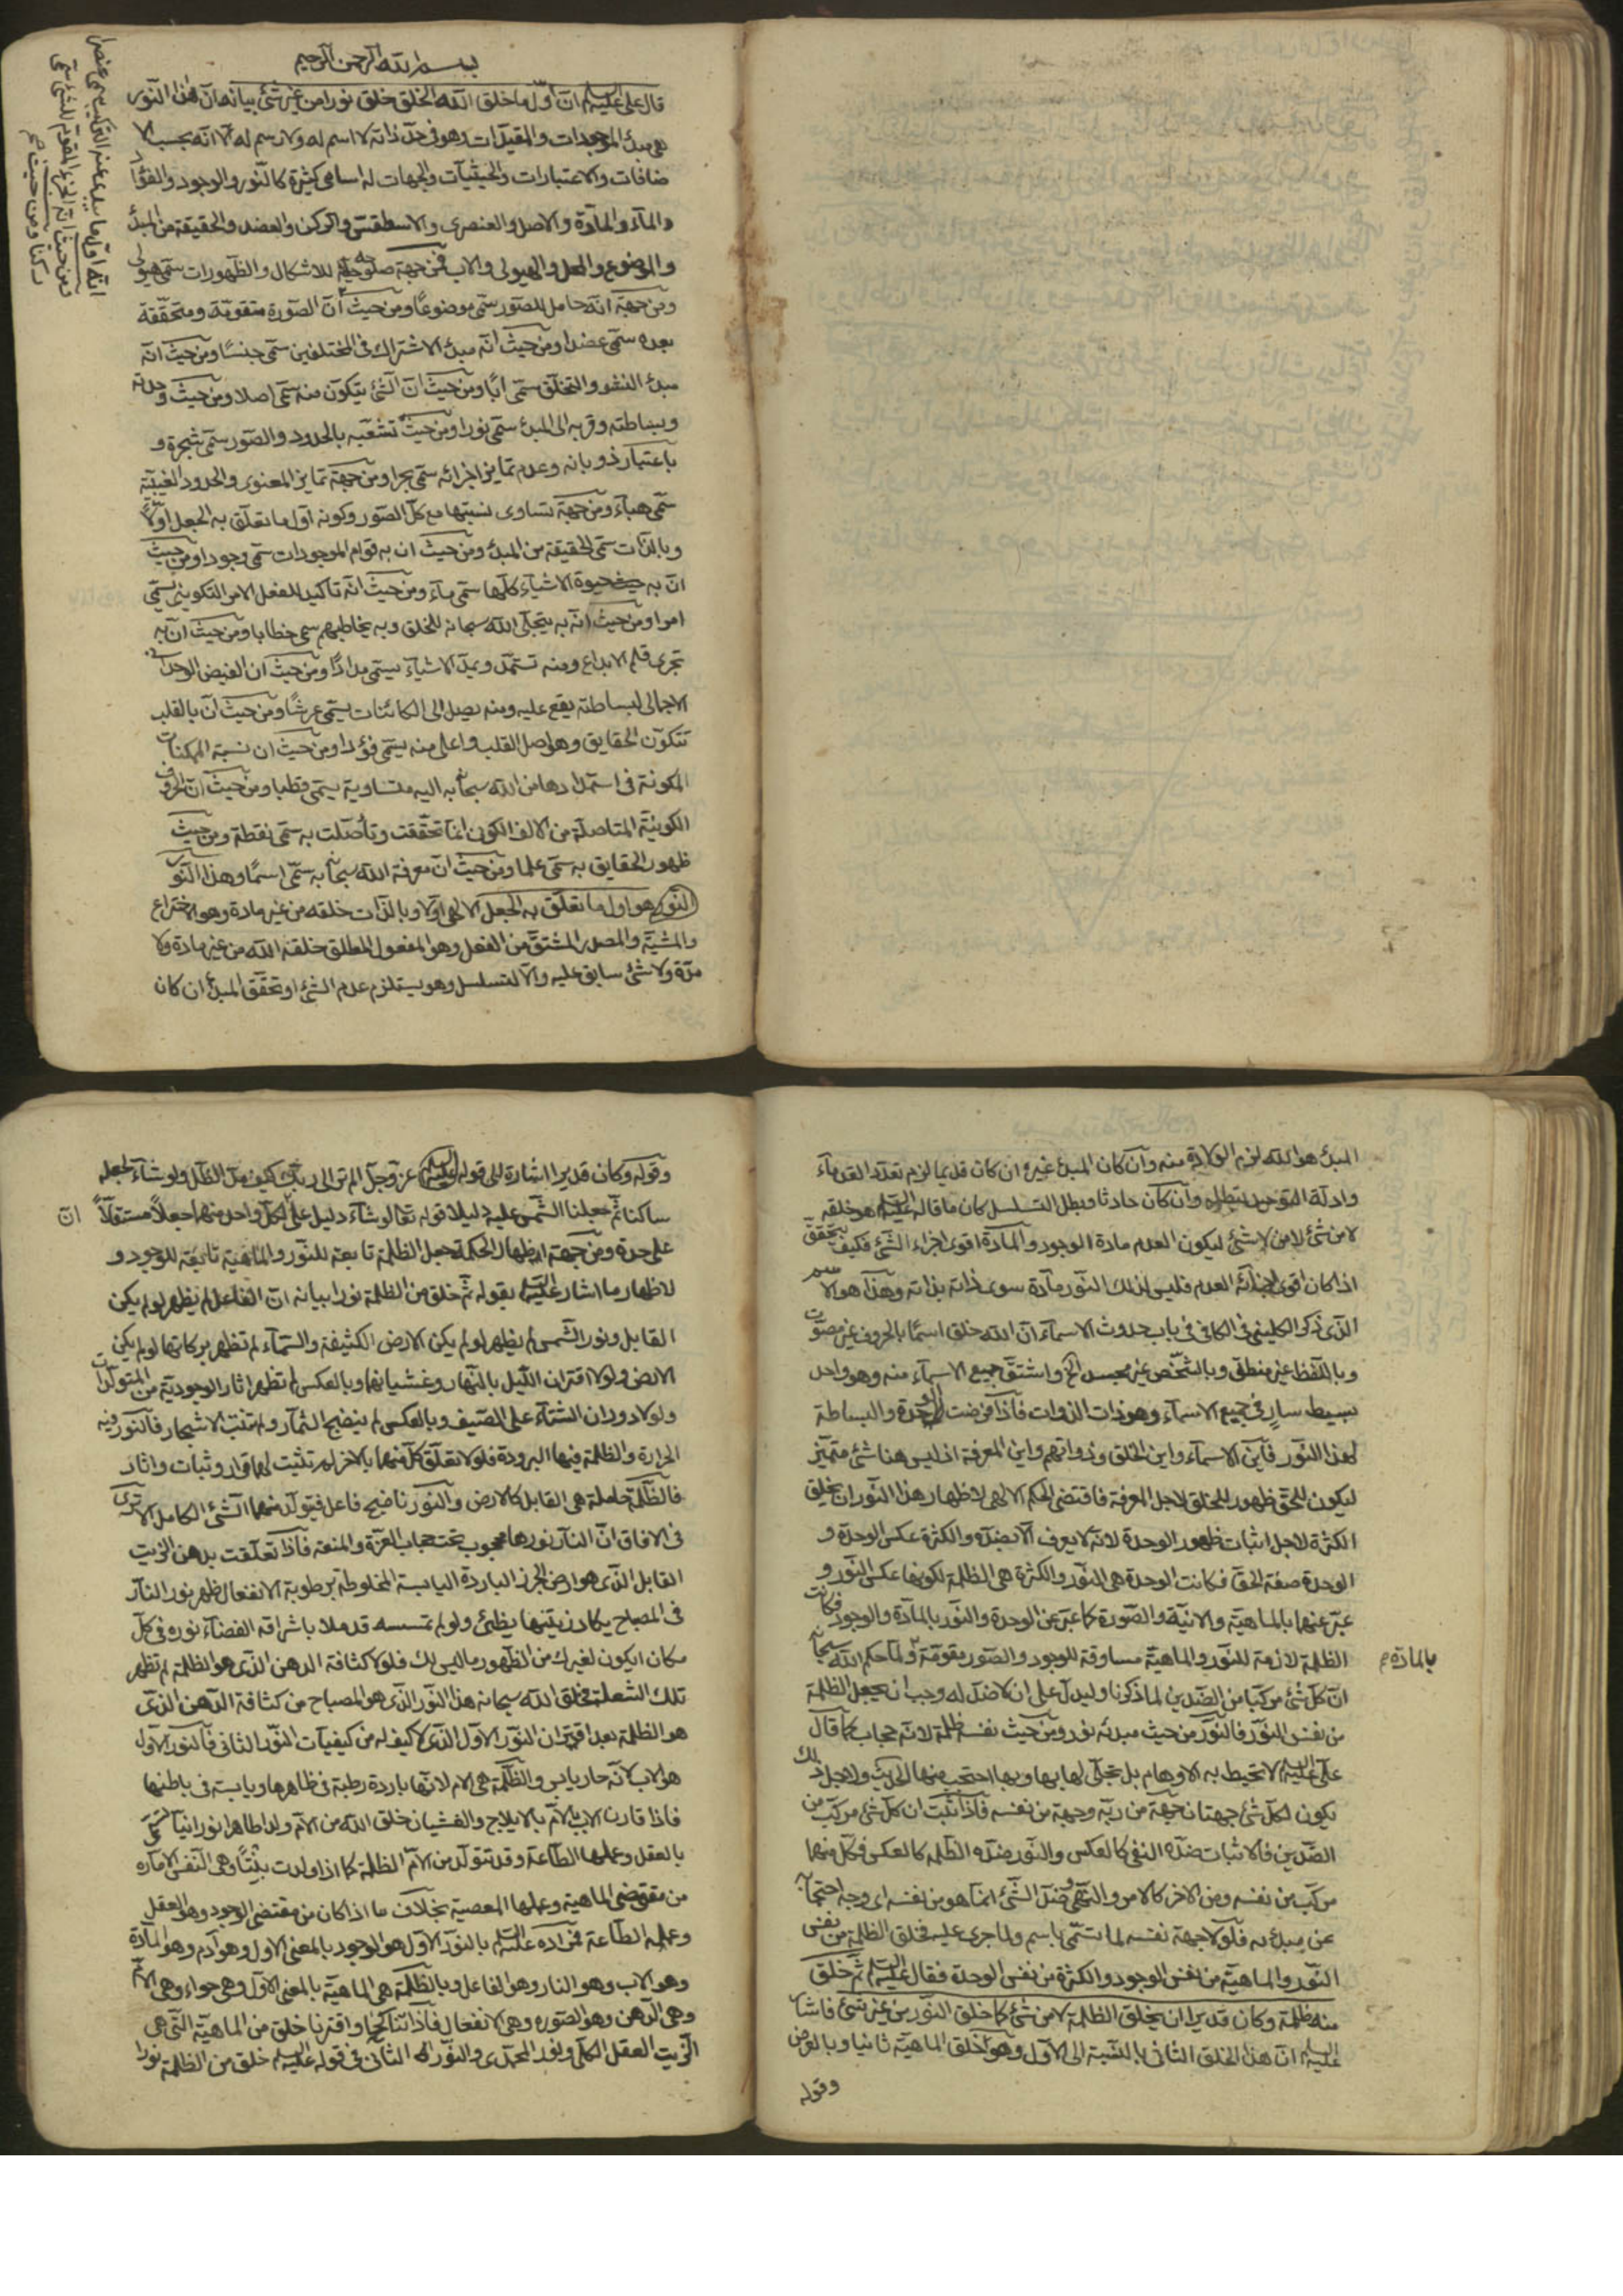 بسم الله الرحمن الرحيم
قال علي عليه السلم ان اول ما خلق الله الخلق خلق نورا من غير شئ بيانه ان هذا النور
هي مبدء الموجودات والمقيدات وهو في حد ذاته لا اسم له ولا رسم له الا انه بحسب الا
ضافات والاعتبارات والحيثيات والجهات له اسامي كثيرة كالنور والوجود والفؤاد
والماء والمادة والاصل والعنصرى والاسطقس والركن والعضد والحقيقة من المبدء
والموضوع والمحل والهيولى والاب فمن جهة صلوحه للاشكال والظهورات سمى هيولى
ومن جهة انه حامل للصور سمى موضوعا ومن حيث ان الصورة متقومة ومتحققة
بعده سمى عضدا ومن حيث انه مبدء الاشتراك في المختلفين سمى جنسا ومن حيث انه
مبدء النشو والتخلق سمى ابا ومن حيث ان الشئ يتكون منه سمى اصلا ومن حيث وحدته
وبساطته وقربه الى المبدء سمى نورا ومن حيث تشعبه بالحدود والصور سمى شجرة و
باعتبار ذوبانه وعدم تمايز اجزائه سمى بحرا ومن جهة تمايز المعنوى والحدود الغيبية
سمى هباء ومن جهة تساوى نسبتها مع كل الصور وكونه اول ما تعلق به الجعل اولا
وبالذات سمى الحقيقة من المبدء ومن حيث ان به قوام الموجودات سمى وجودا ومن حيث
ان به حيوة الاشياء كلها سمى ماء ومن حيث انه تاكيد للفعل الامر التكوينى يسمى
امرا ومن حيث انه به يتجلى الله سبحانه للخلق وبه يخاطبهم سمى خطابا ومن حيث ان به
تجرى قلم الابداع ومنه تستمد ويمد الاشياء يسمى مدادا ومن حيث ان الفيض الوحدانى
الاجمالى لبساطته يقع عليه ومنه يصل الى الكائنات يسمى عرشا ومن حيث ان بالقلب
تتكون الحقايق وهو اصل القلب واعلى منه يسمى فؤادا ومن حيث ان نسبة الممكنات
المكونة في استمدادها من الله سبحانه به اليه متساوية يسمى قطبا ومن حيث ان الحروف
الكونية المتاصلة من الالف الكونى انما تحققت وتاصلت به سمى نقطة ومن حيث
ظهور الحقايق به سمى علما ومن حيث ان معرفة الله سبحانه به سمى اسما وهذا النور
النور هو اول ما تعلق به الجعل الالهي اولا وبالذات خلقه من غير مادة وهو الاختراع
والمشية والمصدر المشتق من الفعل وهو المفعول المطلق خلقه الله من غير مادة ولا
مدة ولا شئ سابق عليه والا لتسلسل وهو يستلزم عدم الشئ او تحقق المبدء ان كان
انه اول ما يبدى عنه التركيب سمى عنصرا
ومن حيث انه الجزء المقوم للشئ سمى
ركنا ومن حيث صح
المبدء هو الله لزم الولادة منه وان كان المبدء غيره ان كان قديما لزم تعدد القدماء
وادلة التوحيد تبطله وان كان حادثا وبطل التسلسل كان ما قاله عليه السلم هو خلقه
لا من شئ لا من لا شئ ليكون العدم مادة الوجود والمادة اقوى اجزاء الشئ فكيف يتحقق
اذا كان اقوى اجزائه العدم فليس لذلك النور مادة سوى ذاته بذاته وهذا هو الاسم
الذى ذكر الكلينى في الكافى في باب حدوث الاسماء ان الله خلق اسما بالحروف غير مصوت
وباللفظ غير منطق وبالشخص غير مجسد الخ واشتق جميع الاسماء منه وهو واحد
بسيط سار في جميع الاسماء وهو ذات الذوات فاذا فرضت الوحدة والبساطة
لهذا النور فاين الاسماء واين الخلق وذواتهم واين المعرفة اذ ليس هنا شئ متميز
ليكون للحق ظهور للخلق لاجل المعرفة فاقتضى الحكم الالهي لاظهار هذا النور ان يخلق
الكثرة لاجل اثبات ظهور الوحدة لانه لا يعرف الا بضده والكثرة عكس الوحدة و
الوحدة صفة الحق فكانت الوحدة هي النور والكثرة هي الظلمة لكونها عكس النور و
عبر عنها بالماهية والانية والصورة كما عبر عن الوحدة والنور بالمادة والوجود فكانت
الظلمة لازمة للنور والماهية مساوقة للوجود والصور مقومة ولما حكم الله سبحانه
بالمادة صح
ان كل شئ مركبا من الضدين لما ذكرنا وليدل على ان لا ضد له وجب ان يجعل الظلمة
من نفس النور فالنور من حيث مبدئه نور ومن حيث نفسه ظلمة لانه حجاب كما قال
علي عليه السلم لا تحيط به الاوهام بل تجلى لها بها وبها احتجب منها الحديث ولاجل ذلك
يكون لكل شئ جهتان جهة من ربه وجهة من نفسه فاذا ثبت ان كل شئ مركب من
الضدين فالاثبات ضده النفي كالعكس والنور ضده الظلمة كالعكس فكل منهما
مركب من نفسه ومن الاخر كالامر والنهي وضد الشئ انما هو من نفسه اى وجه احتجابه
عن مبدئه فلولا جهة نفسه لما تسمى باسم ولما جرى عليه فخلق الظلمة من نفس
النور والماهية من نفس الوجود والكثرة من نفس الوحدة فقال عليه السلم ثم خلق
منه ظلمة وكان قديرا ان يخلق الظلمة لا من شئ كما خلق النور من غير شئ فاشار
عليه السلم ان هذا الخلق الثانى بالنسبة الى الاول وهو خلق الماهية ثانيا وبالعرض
وقوله
وقوله وكان قديرا اشارة الى قوله عز وجل الم تر الى ربك كيف مد الظل ولو شاء لجعله
ساكنا ثم جعلنا الشمس عليه دليلا قوله تعالى لو شاء دليل على لكل واحد منهما جعلا مستقلا
ان
على حدة ومن جهة اظهار الحكمة جعل الظلمة تابعة للنور والماهية تابعة للوجود و
لاظهار ما اشار عليه السلم بقوله ثم خلق من الظلمة نورا بيانه ان الفاعل لم يظهر لو لم يكن
القابل ونور الشمس لم يظهر لو لم يكن الارض الكثيفة والسماء لم تظهر بركاتها لو لم يكن
الارض ولولا اقتران الليل بالنهار وغشيانها وبالعكس لم تظهر اثار الوجودية من المتولدات
ولولا دوران الشتاء على الصيف وبالعكس لم ينضج الثمار ولم تنبت الاشجار فالنور فيه
الحرارة والظلمة فيها البرودة فلولا تعلق كل منهما بالاخر لم تثبت لهما قرار وثبات واثار
فالظلمة حاملة هي القابل كالارض والنور ناضج فاعل فيتولد منهما الشئ الكامل الا ترى
في الافاق ان النار نورها محجوب تحت حجاب العزة والمنعة فاذا تعلقت بدهن الزيت
القابل الذى هو ارض الجرز الباردة اليابسة المخلوطة برطوبة الانفعال ظهر نور النار
في المصباح يكاد زيتها يضئ ولو لم تمسسه قد ملا باشراقه الفضاء نوره في كل
مكان ايكون لغيرك من الظهور ما ليس لك فلولا كثافة الدهن الذى هو الظلمة لم تظهر
تلك الشعلة فخلق الله سبحانه هذا النور الذى هو المصباح من كثافة الدهن الذى
هو الظلمة بعد اقتران النور الاول الذى لا كيف له من كيفيات النور الثانى فالنور الاول
هو الاب لانه حار يابس والظلمة هي الام لانها باردة رطبة في ظاهرها ويابسة في باطنها
فاذا قارن الاب بالام بالايلاج والغشيان خلق الله من الام ولدا طاهرا نورانيا سمى
بالعقل وعملها الطاعة وقد تتولد من الام الظلمة كما اذا ولدت بنتا وهي النفس الامارة
من مقتضى الماهية وعملها المعصية بخلاف ما اذا كان من مقتضى الوجود وهو العقل
وعمله الطاعة فمراده عليه السلم بالنور الاول هو الوجود بالمعنى الاول وهو ادم وهو المادة
وهو الاب وهو النار وهو الفاعل وبالظلمة هي الماهية بالمعنى الاول وهي حواء وهي الام
وهي الدهن وهو الصورة وهي الانفعال فاذا تناكحا واقترنا خلق من الماهية التى هي
الزيت العقل الكلى ونور المحمدى والنور الثانى في قوله عليه السلم خلق من الظلمة نورا